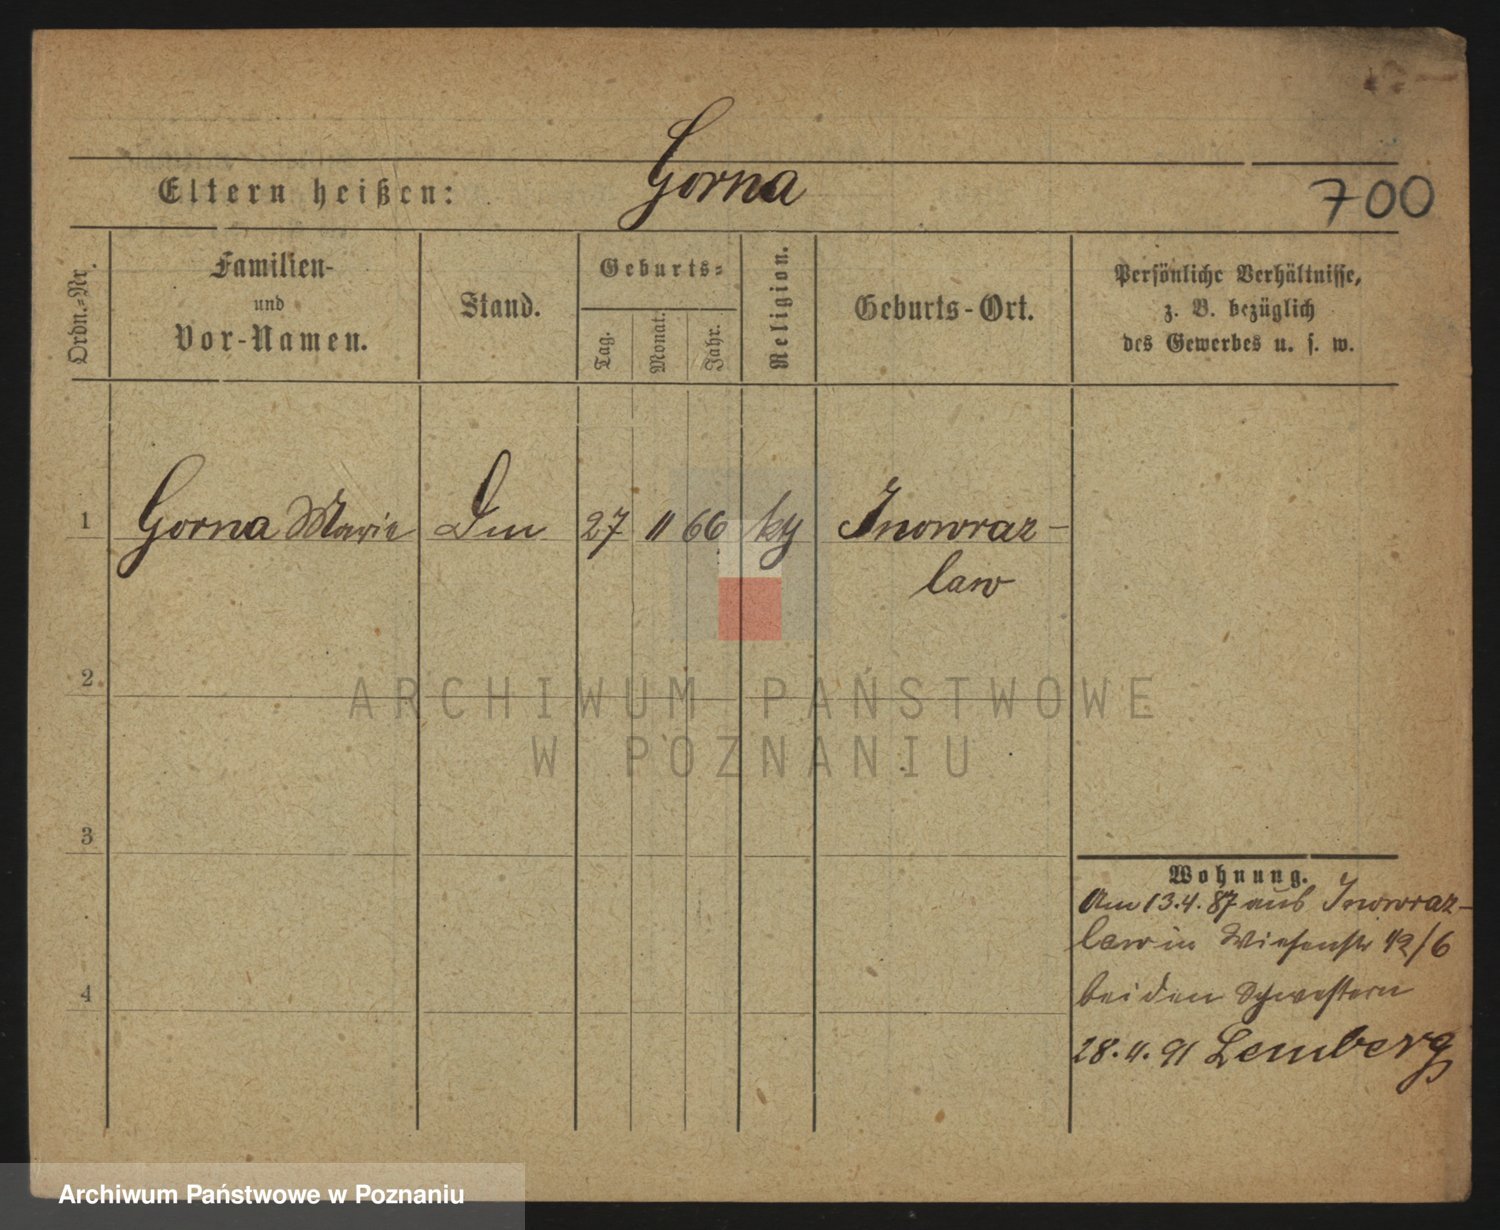 Gorna
Eltern heißen:
700
Ordn.-Nr.
Familien-
und
Vor-Namen.
Stand.
Geburts-
Tag.
Monat.
Jahr.
Religion.
Geburts-Ort.
Persönliche Verhältnisse,
z. B. bezüglich
des Gewerbes u. s. w.
1 Gorna Marie 27 11 66 Inowraz-
law
2
ARCHIWUM PAŃSTWOWE
W POZNANIU
3
Wohnung.
Am 13.4.87 aus Inowraz-
law in Wiesenstr 12/6
4
bei den Schwestern
28.4.91 Lemberg
Archiwum Państwowe w Poznaniu